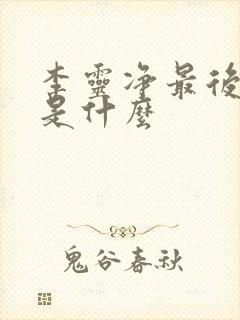 李靈净最後
是什麼
鬼谷春秋